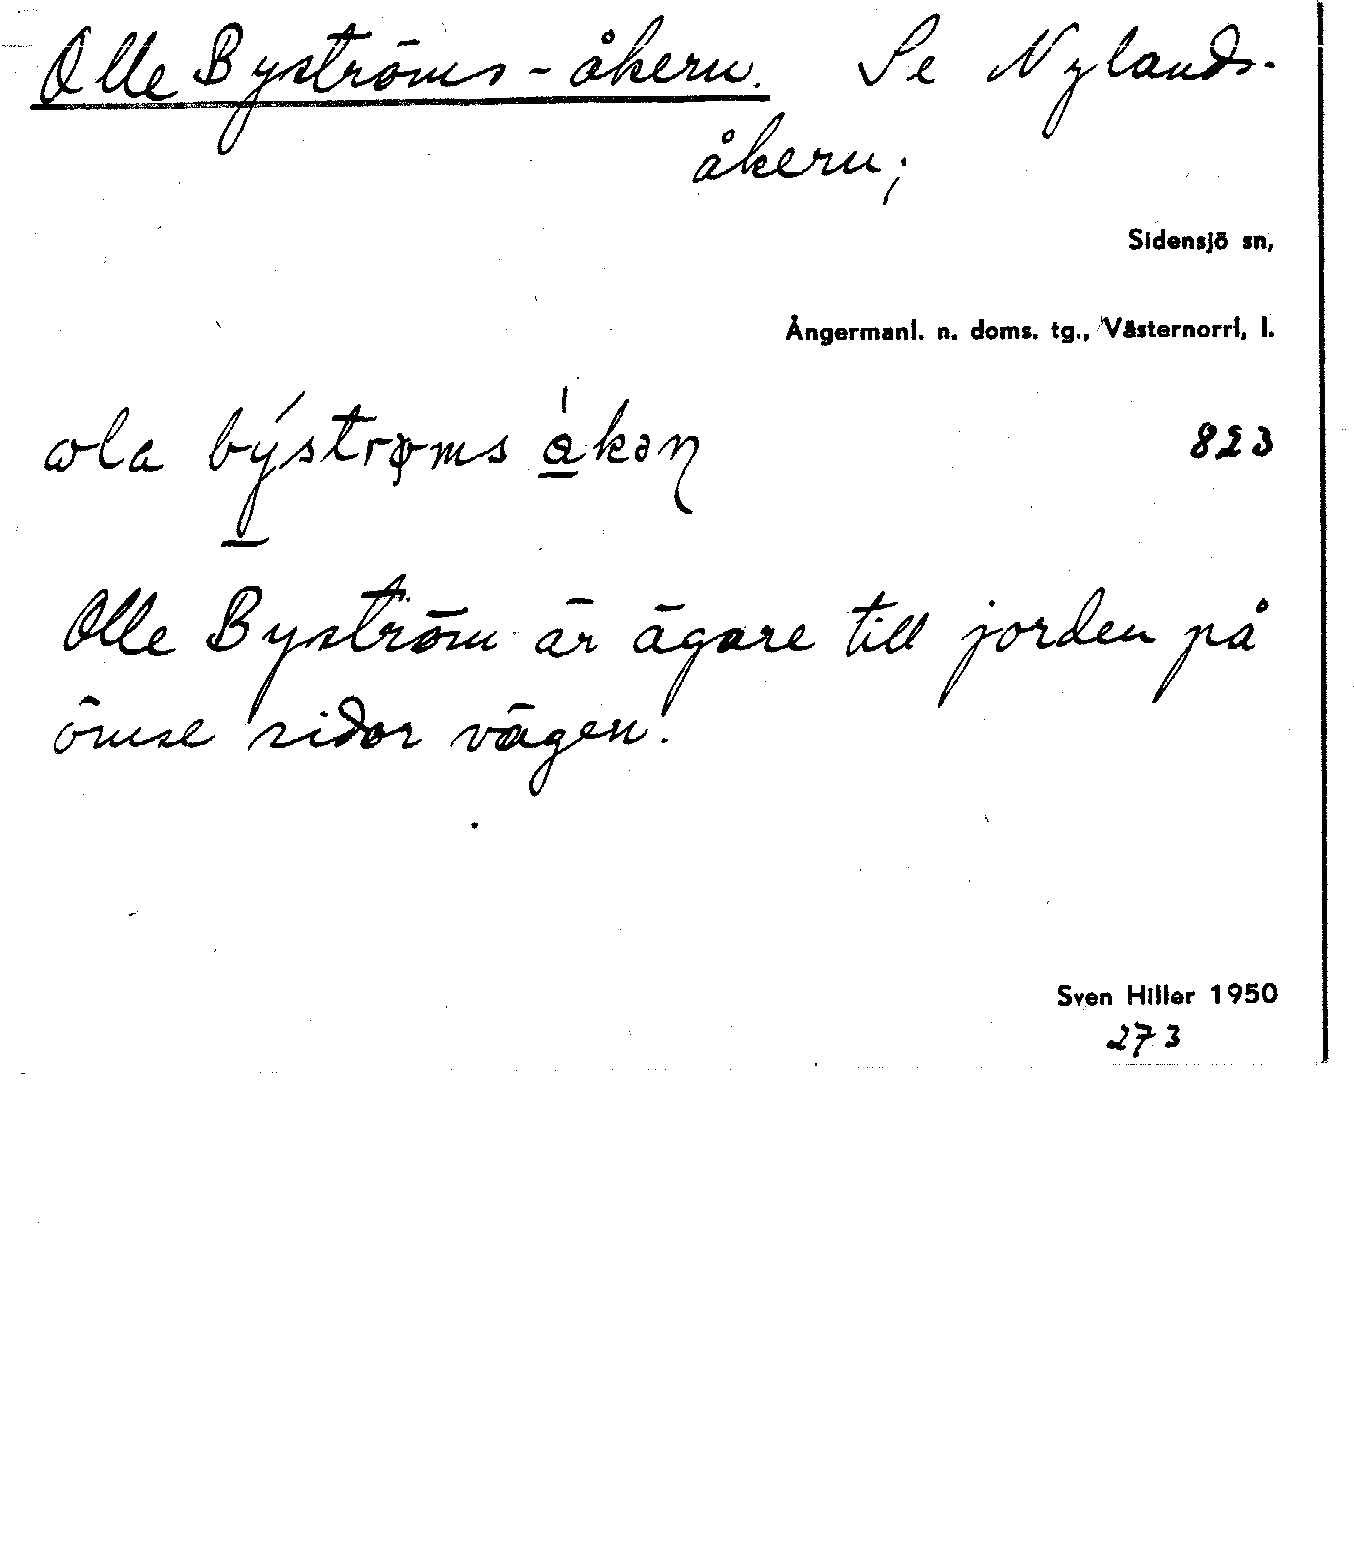 Olle Byströms-åkern. Se Nylands-
åkern;
Sidensjö sn,
Ångermanl. n. doms. tg., Västernorrl. l.
823
Olle Byström är ägare till jorden på
ömse sidor vägen.
Sven Hiller 1950
273